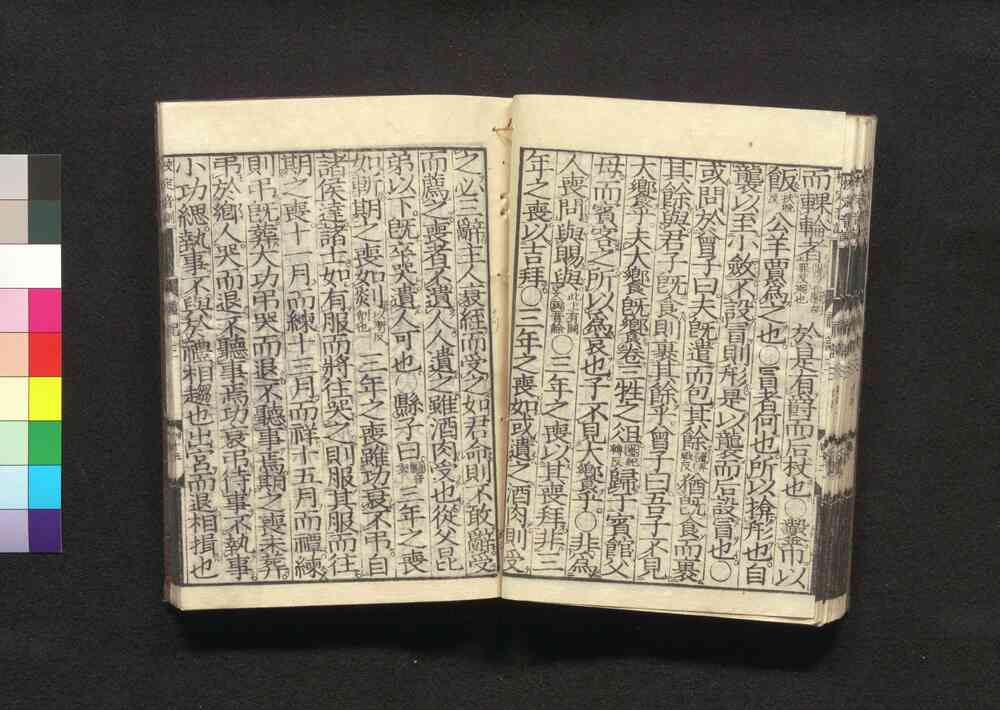 而輠輪者於是有爵而后杖也〇鑿巾以
飯扶晚反公羊賈為之也〇冒者何也所以揜形也自
襲以至小斂不設冒則形是以襲而后設冒也〇
或問於曾子曰夫既遣而包其餘遣弃戰反猶既食而裹
其餘與君子既食則裹其餘乎曾子曰吾子不見
大饗乎夫大饗既饗卷三牲之俎卷紀轉反歸于賓館父
母而賓客之所以為哀也子不見大饗乎〇非為
人喪問與賜與此上有闕文與音餘〇三年之喪以其喪拜非三
年之喪以吉拜〇三年之喪如或遺之酒肉則受
之必三辭主人衰絰而受之如君命則不敢辭受
而薦之喪者不遺人人遺之雖酒肉受也從父昆
弟以下既卒哭遺人可也〇縣子曰縣音玄三年之喪
如斬期之喪如剡以漸反三年之喪雖功衰不弔自
諸侯達諸士如有服而將往哭之則服其服而往
期之喪十一月而練十三月而祥十五月而禫練
則弔既葬大功弔哭而退不聽事焉期之喪未葬
弔於鄉人哭而退不聽事焉功衰弔待事不執事
小功緦執事不與於禮相趨也出宮而退相揖也